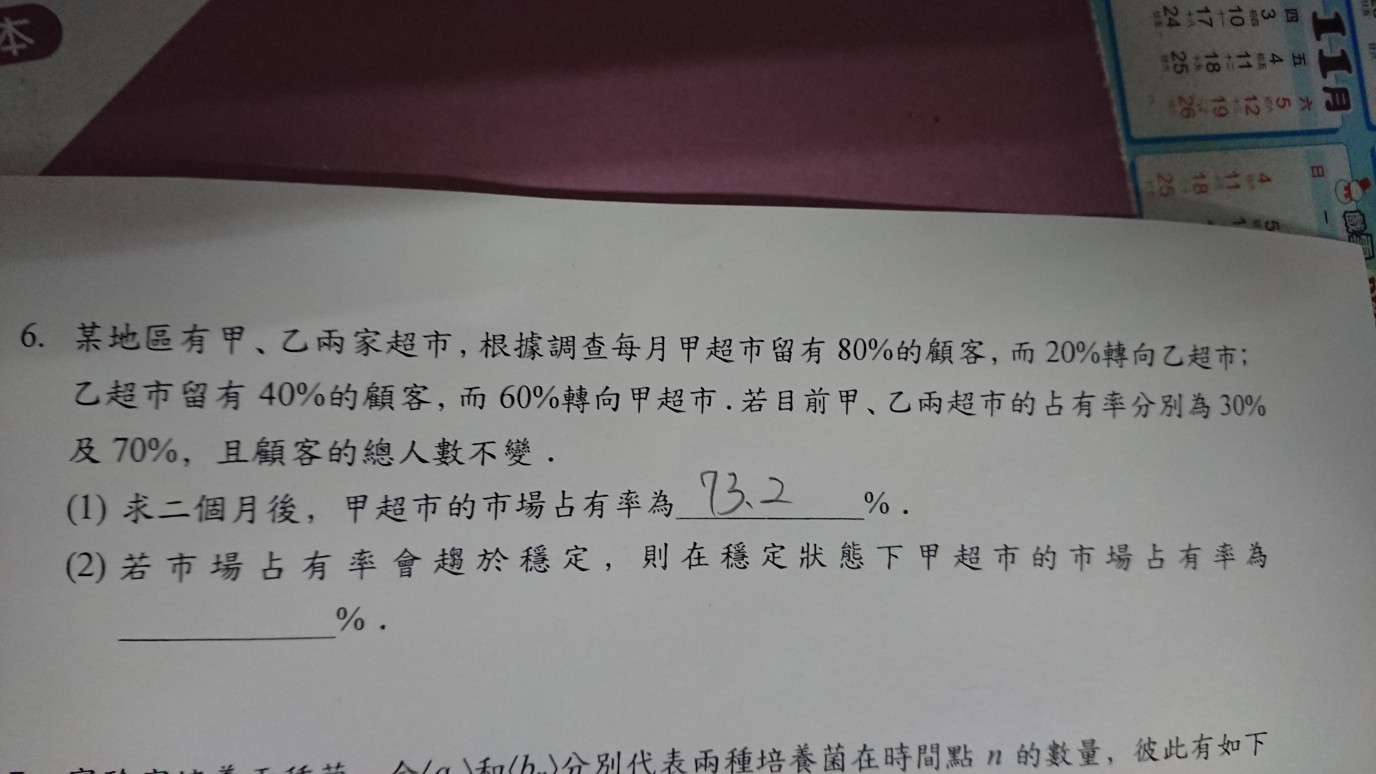 本
11月
四 3 10 17 24
五 4 11 18 25
六 5 12 19 26
日 4 11 18 25
一 5
6. 某地區有甲、乙兩家超市,根據調查每月甲超市留有 80%的顧客,而 20%轉向乙超市;
乙超市留有 40%的顧客,而 60%轉向甲超市.若目前甲、乙兩超市的占有率分別為 30%
及 70%,且顧客的總人數不變.
(1) 求二個月後,甲超市的市場占有率為 73.2 %.
(2) 若市場占有率會趨於穩定,則在穩定狀態下甲超市的市場占有率為
%.
分別代表兩種培養菌在時間點 n 的數量,彼此有如下